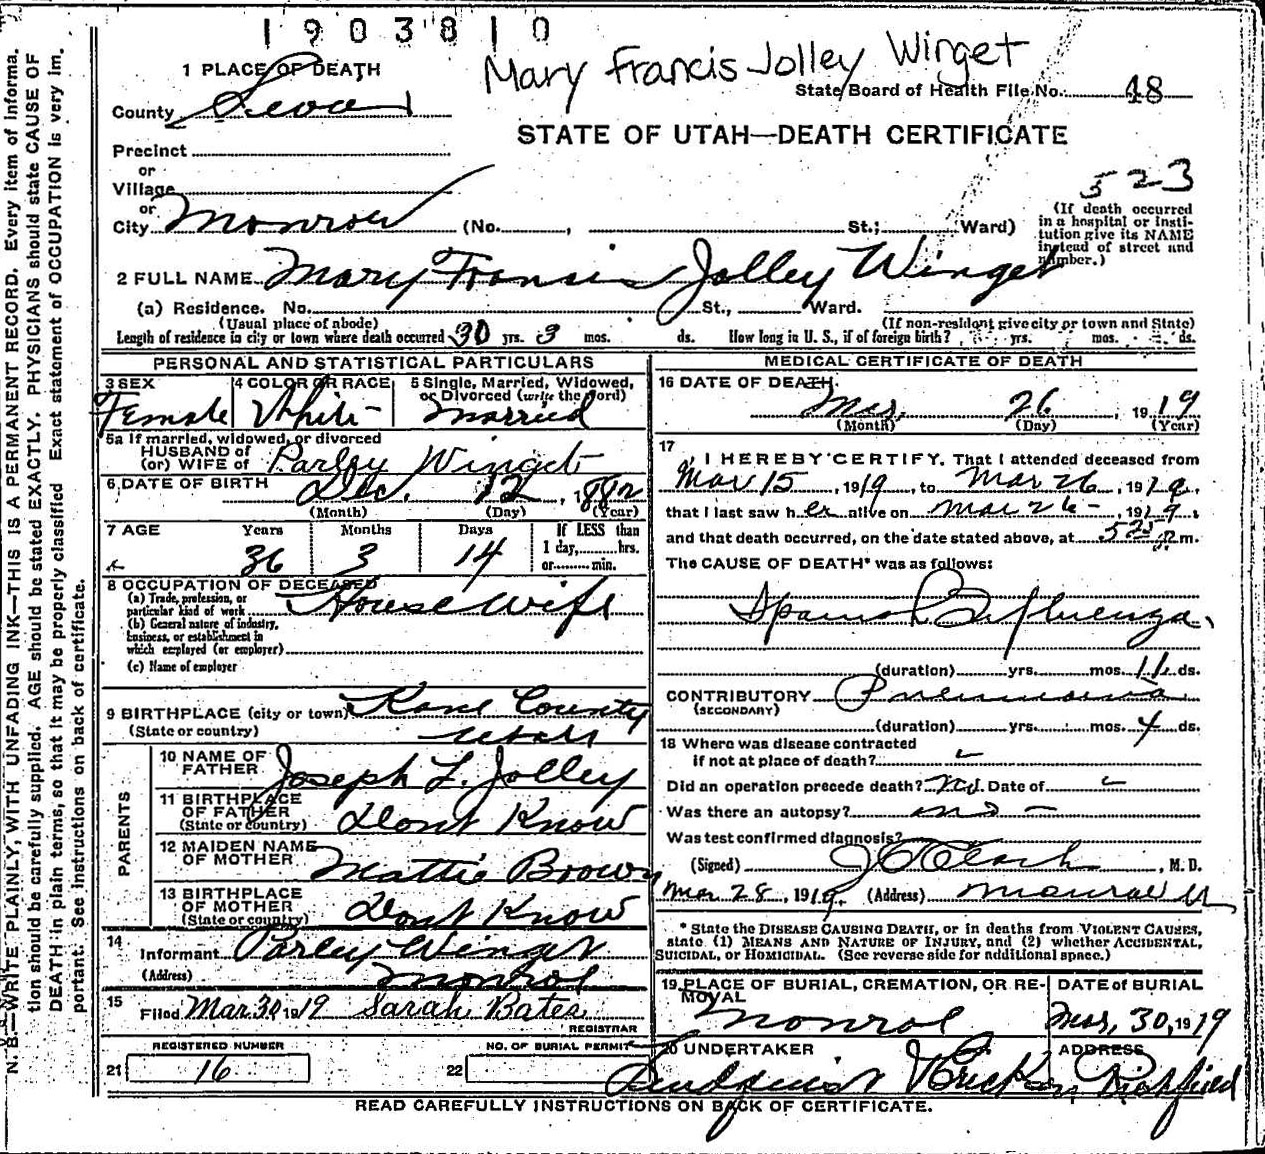 1903810
Mary Francis Jolley Winget
State Board of Health File No. 48
STATE OF UTAH—DEATH CERTIFICATE
523
1 PLACE OF DEATH
County Sevier
Precinct
or
Village
or
City Monroe (No. , St.; Ward)
(If death occurred
in a hospital or insti-
tution give its NAME
instead of street and
number.)
2 FULL NAME Mary Francis Jolley Winget
(a) Residence. No. St., Ward.
(Usual place of abode) (If non-resident give city or town and State)
Length of residence in city or town where death occurred 30 yrs. 3 mos. ds. How long in U. S., if of foreign birth? yrs. mos. ds.
PERSONAL AND STATISTICAL PARTICULARS
3 SEX 4 COLOR OR RACE 5 Single, Married, Widowed,
or Divorced (write the word)
Female White Married
5a If married, widowed, or divorced
HUSBAND of
(or) WIFE of Parley Winget
6 DATE OF BIRTH Dec. 12, 1882
(Month) (Day) (Year)
7 AGE Years Months Days If LESS than
1 day, hrs.
36 3 14 or min.
8 OCCUPATION OF DECEASED
(a) Trade, profession, or
particular kind of work House Wife
(b) General nature of industry,
business, or establishment in
which employed (or employer)
(c) Name of employer
9 BIRTHPLACE (city or town) Kane County
(State or country) Utah
PARENTS
10 NAME OF
FATHER Joseph L. Jolley
11 BIRTHPLACE
OF FATHER
(State or country) Dont Know
12 MAIDEN NAME
OF MOTHER Mattie Brown
13 BIRTHPLACE
OF MOTHER
(State or country) Dont Know
14
Informant Parley Winget
(Address) Monroe
15
Filed Mar. 30, 1919 Sarah Bates
REGISTRAR
REGISTERED NUMBER NO. OF BURIAL PERMIT
21 16 22
MEDICAL CERTIFICATE OF DEATH
16 DATE OF DEATH
Mar. 26, 1919
(Month) (Day) (Year)
17
I HEREBY CERTIFY, That I attended deceased from
Mar 15, 1919, to Mar 26, 1919,
that I last saw her alive on Mar 26, 1919,
and that death occurred, on the date stated above, at 5 25 m.
The CAUSE OF DEATH* was as follows:
Spanish Influenza
(duration) yrs. mos. 11 ds.
CONTRIBUTORY Pneumonia
(SECONDARY)
(duration) yrs. mos. 4 ds.
18 Where was disease contracted
if not at place of death?
Did an operation precede death? No. Date of
Was there an autopsy? no
Was test confirmed diagnosis?
(Signed) , M. D.
Mar 28, 1919. (Address) Monroe U
* State the DISEASE CAUSING DEATH, or in deaths from VIOLENT CAUSES,
state (1) MEANS AND NATURE OF INJURY, and (2) whether ACCIDENTAL,
SUICIDAL, or HOMICIDAL. (See reverse side for additional space.)
19 PLACE OF BURIAL, CREMATION, OR RE-
MOVAL DATE of BURIAL
Monroe Mar, 30, 1919
20 UNDERTAKER ADDRESS
Richfield
READ CAREFULLY INSTRUCTIONS ON BACK OF CERTIFICATE.
N. B.—WRITE PLAINLY, WITH UNFADING INK—THIS IS A PERMANENT RECORD. Every item of informa-
tion should be carefully supplied. AGE should be stated EXACTLY. PHYSICIANS should state CAUSE OF
DEATH in plain terms, so that it may be properly classified. Exact statement of OCCUPATION is very im-
portant. See instructions on back of certificate.